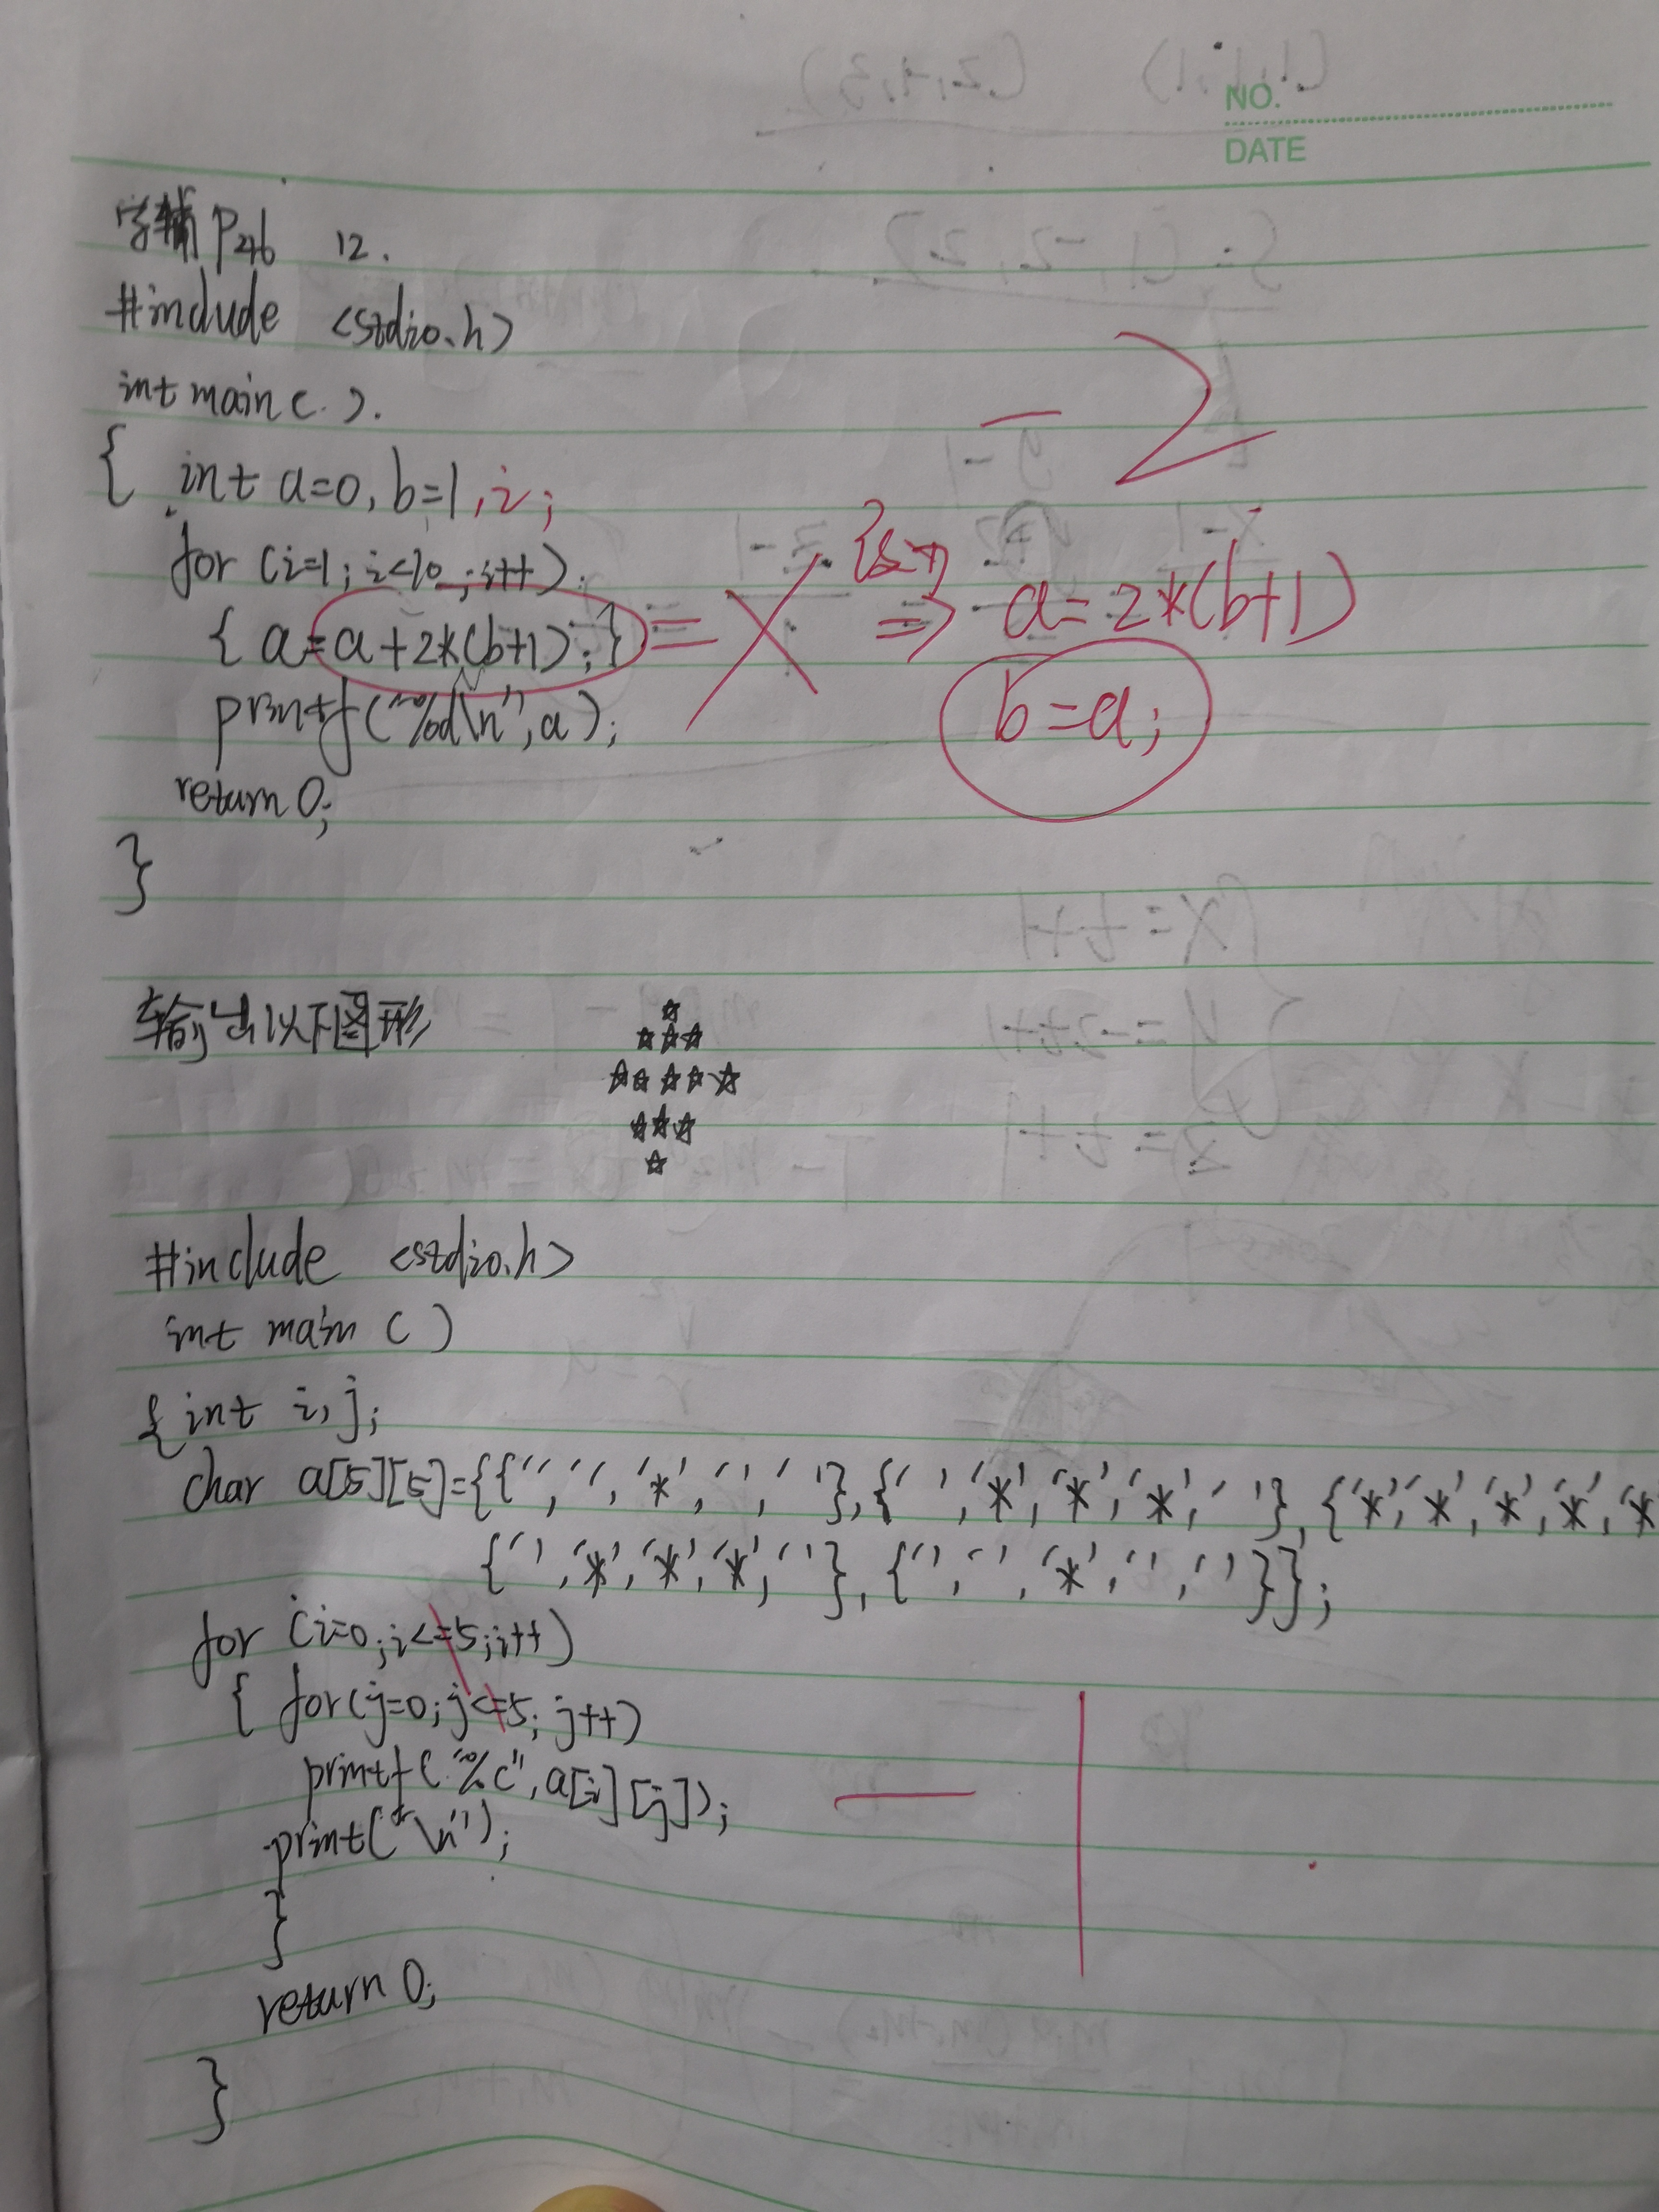 NO.
DATE
学辅 P246 12.
#include <stdio.h>
int main ( ).
{ int a=0, b=1,i;
-2
for (i=1; i<10 ; i++)
{ a=a+2*(b+1); } = ⇒ a=2*(b+1)
printf("%d\n",a); b=a;
return 0;
}
输出以下图形
☆
☆☆☆
☆☆☆☆☆
☆☆☆
☆
#include <stdio.h>
int main ( )
{ int i, j;
char a[5][5]={{' ',' ','*',' ',' '},{' ','*','*','*',' '},{'*','*','*','*','*
{' ','*','*','*',' '},{' ',' ','*',' ',' '}};
for (i=0;i<=5;i++)
{ for(j=0;j<=5; j++)
printf("%c",a[i][j]);
print("\n");
-1
}
return 0;
}